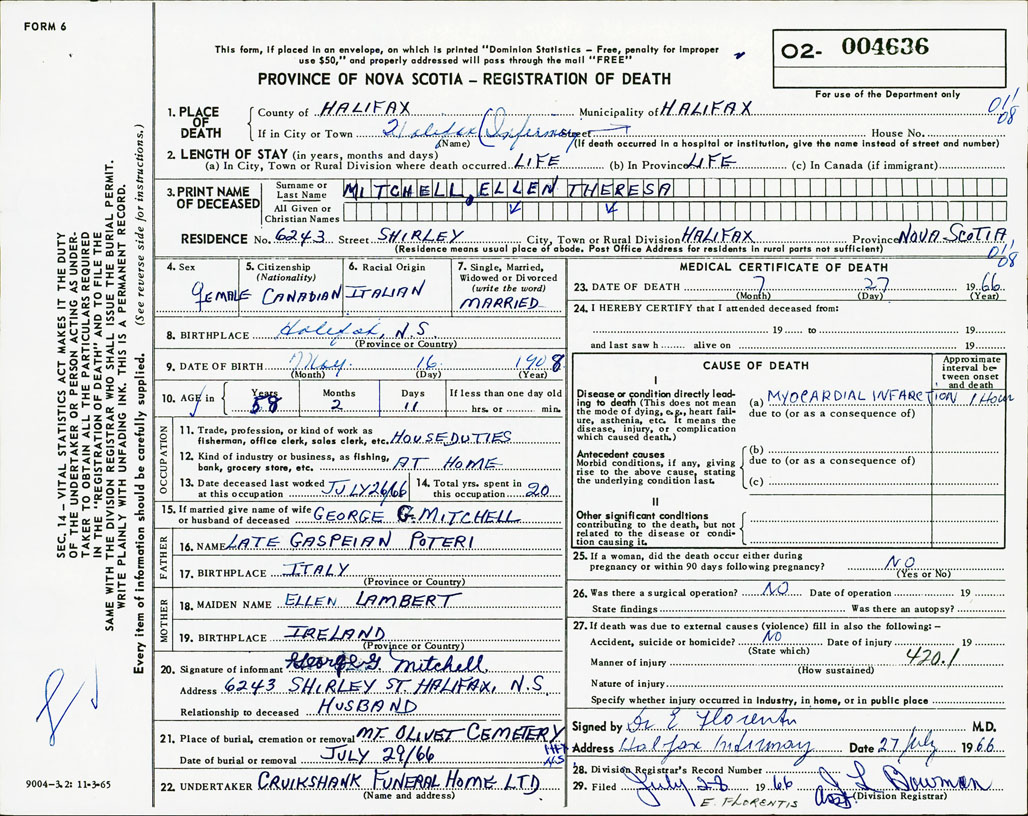 FORM 6
This form, if placed in an envelope, on which is printed "Dominion Statistics – Free, penalty for improper
use $50," and properly addressed will pass through the mail "FREE"
PROVINCE OF NOVA SCOTIA – REGISTRATION OF DEATH
02- 004636
For use of the Department only
011
08
SEC. 14 – VITAL STATISTICS ACT MAKES IT THE DUTY
OF THE UNDERTAKER OR PERSON ACTING AS UNDER-
TAKER TO OBTAIN ALL THE PARTICULARS REQUIRED
IN THE "REGISTRATION OF DEATH" AND TO FILE THE
SAME WITH THE DIVISION REGISTRAR WHO SHALL ISSUE THE BURIAL PERMIT.
WRITE PLAINLY WITH UNFADING INK. THIS IS A PERMANENT RECORD.
Every item of information should be carefully supplied. (See reverse side for instructions.)
1. PLACE OF DEATH County of HALIFAX Municipality of HALIFAX
If in City or Town Halifax (Infirmary Street House No.
(Name) (If death occurred in a hospital or institution, give the name instead of street and number)
2. LENGTH OF STAY (in years, months and days)
(a) In City, Town or Rural Division where death occurred LIFE (b) In Province LIFE (c) In Canada (if immigrant)
3. PRINT NAME OF DECEASED Surname or Last Name MITCHELL, ELLEN THERESA
All Given or Christian Names
RESIDENCE No. 6243 Street SHIRLEY City, Town or Rural Division HALIFAX Province NOVA SCOTIA
(Residence means usual place of abode. Post Office Address for residents in rural parts not sufficient)
011
08
4. Sex FEMALE
5. Citizenship (Nationality) CANADIAN
6. Racial Origin ITALIAN
7. Single, Married, Widowed or Divorced (write the word) MARRIED
8. BIRTHPLACE Halifax, N.S.
(Province or Country)
9. DATE OF BIRTH May 16 1908
(Month) (Day) (Year)
10. AGE in Years 58 Months 2 Days 11 If less than one day old hrs. or min.
OCCUPATION
11. Trade, profession, or kind of work as
fisherman, office clerk, sales clerk, etc. HOUSEDUTIES
12. Kind of industry or business, as fishing,
bank, grocery store, etc. AT HOME
13. Date deceased last worked at this occupation JULY 26/66 14. Total yrs. spent in this occupation 20
15. If married give name of wife
or husband of deceased GEORGE G. MITCHELL
FATHER
16. NAME LATE GASPEIAN POTERI
17. BIRTHPLACE ITALY
(Province or Country)
MOTHER
18. MAIDEN NAME ELLEN LAMBERT
19. BIRTHPLACE IRELAND
(Province or Country)
20. Signature of informant George G. Mitchell
Address 6243 SHIRLEY ST. HALIFAX, N.S.
Relationship to deceased HUSBAND
21. Place of burial, cremation or removal MT. OLIVET CEMETERY
Date of burial or removal JULY 29/66 HFX NS
22. UNDERTAKER CRUIKSHANK FUNERAL HOME LTD
(Name and address)
9004-3.2: 11-3-65
MEDICAL CERTIFICATE OF DEATH
23. DATE OF DEATH 7 27 1966
(Month) (Day) (Year)
24. I HEREBY CERTIFY that I attended deceased from:
19 to 19
and last saw h alive on 19
CAUSE OF DEATH
Approximate interval between onset and death
I
Disease or condition directly lead-
ing to death (This does not mean
the mode of dying, e.g., heart fail-
ure, asthenia, etc. It means the
disease, injury, or complication
which caused death.)
(a) MYOCARDIAL INFARCTION 1 Hour
due to (or as a consequence of)
Antecedent causes
Morbid conditions, if any, giving
rise to the above cause, stating
the underlying condition last.
(b)
due to (or as a consequence of)
(c)
II
Other significant conditions
contributing to the death, but not
related to the disease or condi-
tion causing it.
25. If a woman, did the death occur either during
pregnancy or within 90 days following pregnancy? NO
(Yes or No)
26. Was there a surgical operation? NO Date of operation 19
State findings Was there an autopsy?
27. If death was due to external causes (violence) fill in also the following:–
Accident, suicide or homicide? NO Date of injury 19
(State which)
420.1
Manner of injury
(How sustained)
Nature of injury
Specify whether injury occurred in industry, in home, or in public place
Signed by Dr E Florentis M.D.
Address Halifax Infirmary Date 27/July 1966
28. Division Registrar's Record Number
29. Filed July 28 1966 J L Bowman
Asst. (Division Registrar)
E. FLORENTIS